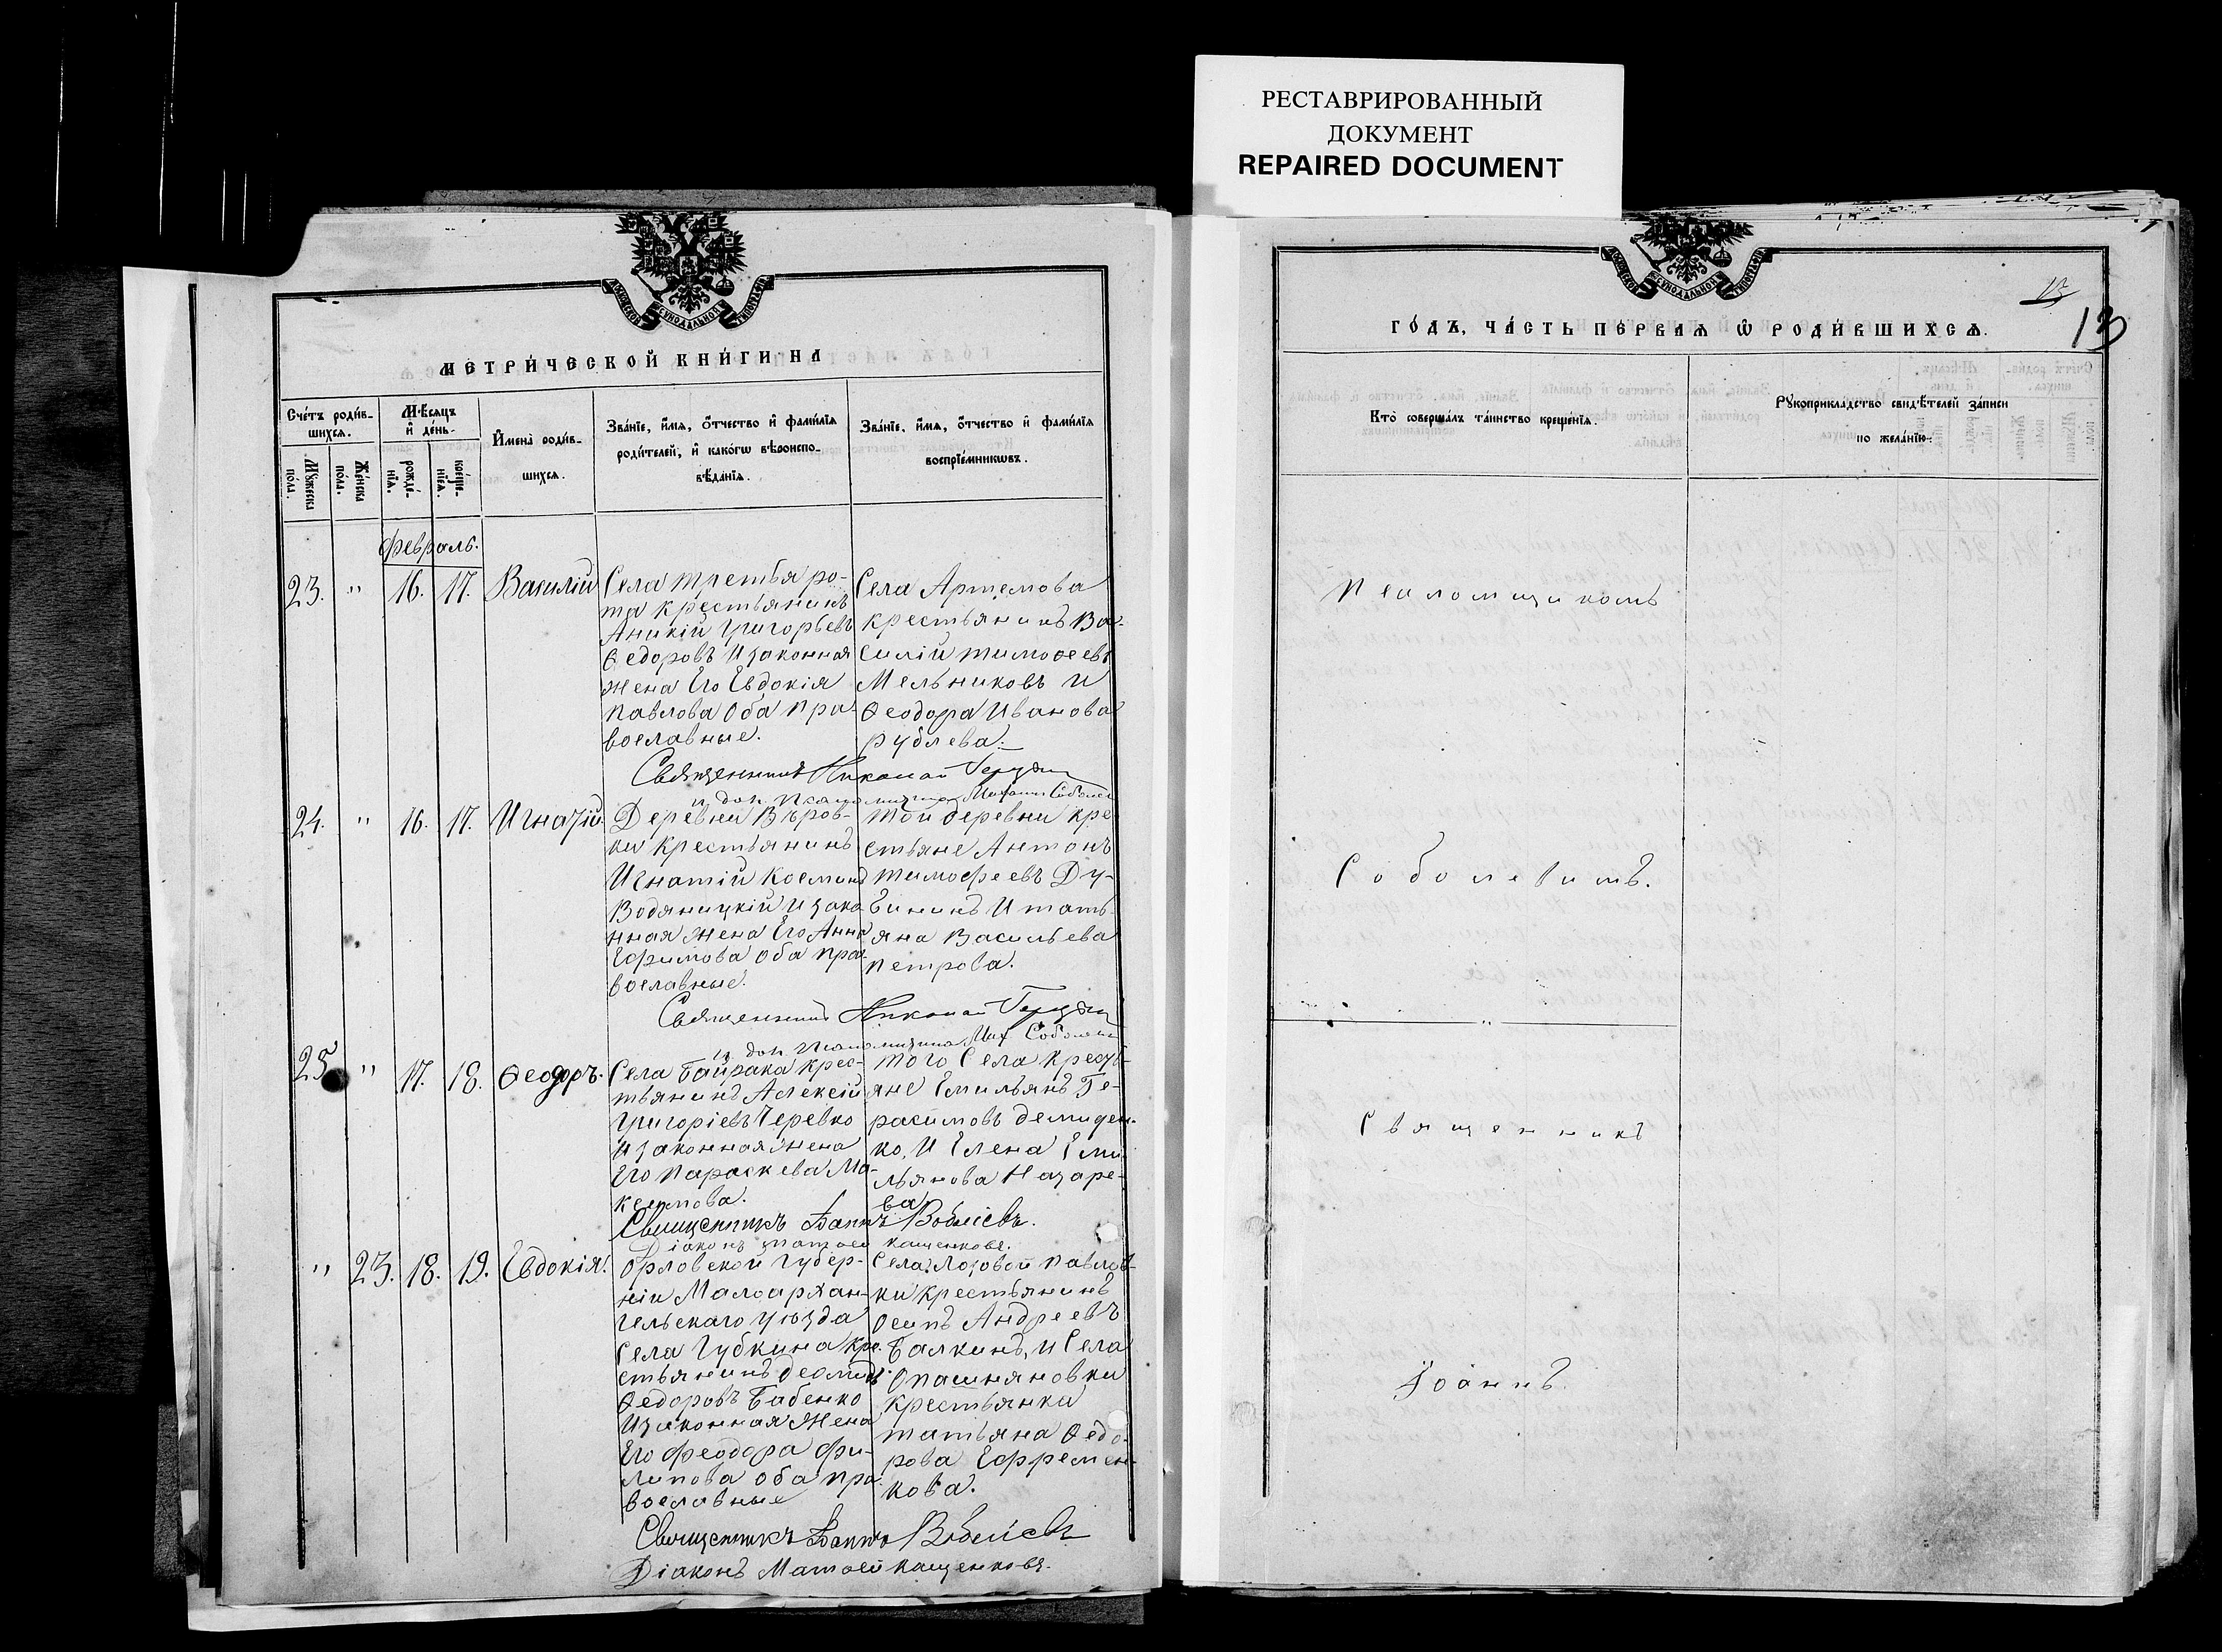 РЕСТАВРИРОВАННЫЙ
ДОКУМЕНТ
REPAIRED DOCUMENT
МЕТРИ́ЧЕСКОЙ КНИ́ГИ НА
Сче́тъ роди́в-
шихсѧ.
Мѣ́сѧцъ
и҆ де́нь.
И҆мена̀ роди́в-
шихсѧ.
Зва́нїе, и҆́мѧ, ѻ҆́тчество и҆ фами́лїѧ
роди́телей, и҆ како́гѡ вѣроиспо-
вѣ́данїѧ.
Зва́нїе, и҆́мѧ, ѻ҆́тчество и҆ фами́лїѧ
воспрїе́мникѡвъ.
Мꙋ́жеска
по́ла.
Же́нска
по́ла.
рожде́-
нїѧ.
креще́-
нїѧ.
Февраль.
23. " 16. 17. Василій
Села третья ро-
та крестьянинъ
Аникій Григорьевъ
Ѳедоровъ И законная
жена Его Евдокія
Павлова Оба пра-
вославные.
Села Артемова
крестьянинъ Ва-
силій Тимоѳеевъ
Мельниковъ И
Ѳеодора Иванова
Рублева.
Священникъ Николай
24. " 16. 17. Игнатій.
Деревни Веров-
ки крестьянинъ
Игнатій Косминъ
Водяницкій И зако
нная жена Его Анна
Ефимова оба пра-
вославные.
Той деревни кре
стьяне Антонъ
Тимофеевъ Ду-
бининъ И тать-
яна Васильева
Петрова.
Священникъ Николай
25 " 17. 18. Ѳеодоръ.
Села Байрака крес-
тьянинъ Алексій
Григоріевъ Черевко
И законная жена
Его Параскева Ма-
ксимова.
Того Села кресть-
яне Емильянъ Ге-
расимовъ Демиден-
ко, И Елена Еми-
льянова Назаре-
ва
Священникъ
Діаконъ Матѳей Кащенковъ.
" 23. 18. 19. Евдокія.
Орловской Губер-
ніи Малоархан-
гельскаго уѣзда
Села Губкина кре-
стьянинъ
Ѳедоровъ Бабенко
И законная жена
Его Феодора Фи-
липова оба пра-
вославные
Села Лозовой Павлов-
ки крестьянинъ
Осипъ Андреевъ
Балкинъ, И Села
Опашняновки
крестьянка
татьяна Ѳедо-
рова Ефремен-
кова.
Священникъ
Діаконъ Матѳей Кащенковъ.
ГО́ДЪ, ЧА́СТЬ ПЕ́РВАѦ Ѽ РОДИ́ВШИХСѦ.
13
13
Кто̀ соверша́лъ та́инство креще́нїѧ.
Рꙋкоприкла́дство свидѣ́телей за́писи
по жела́нїю.
Псаломщикомъ
Соболевимъ.
Священникъ
Іоаннъ.